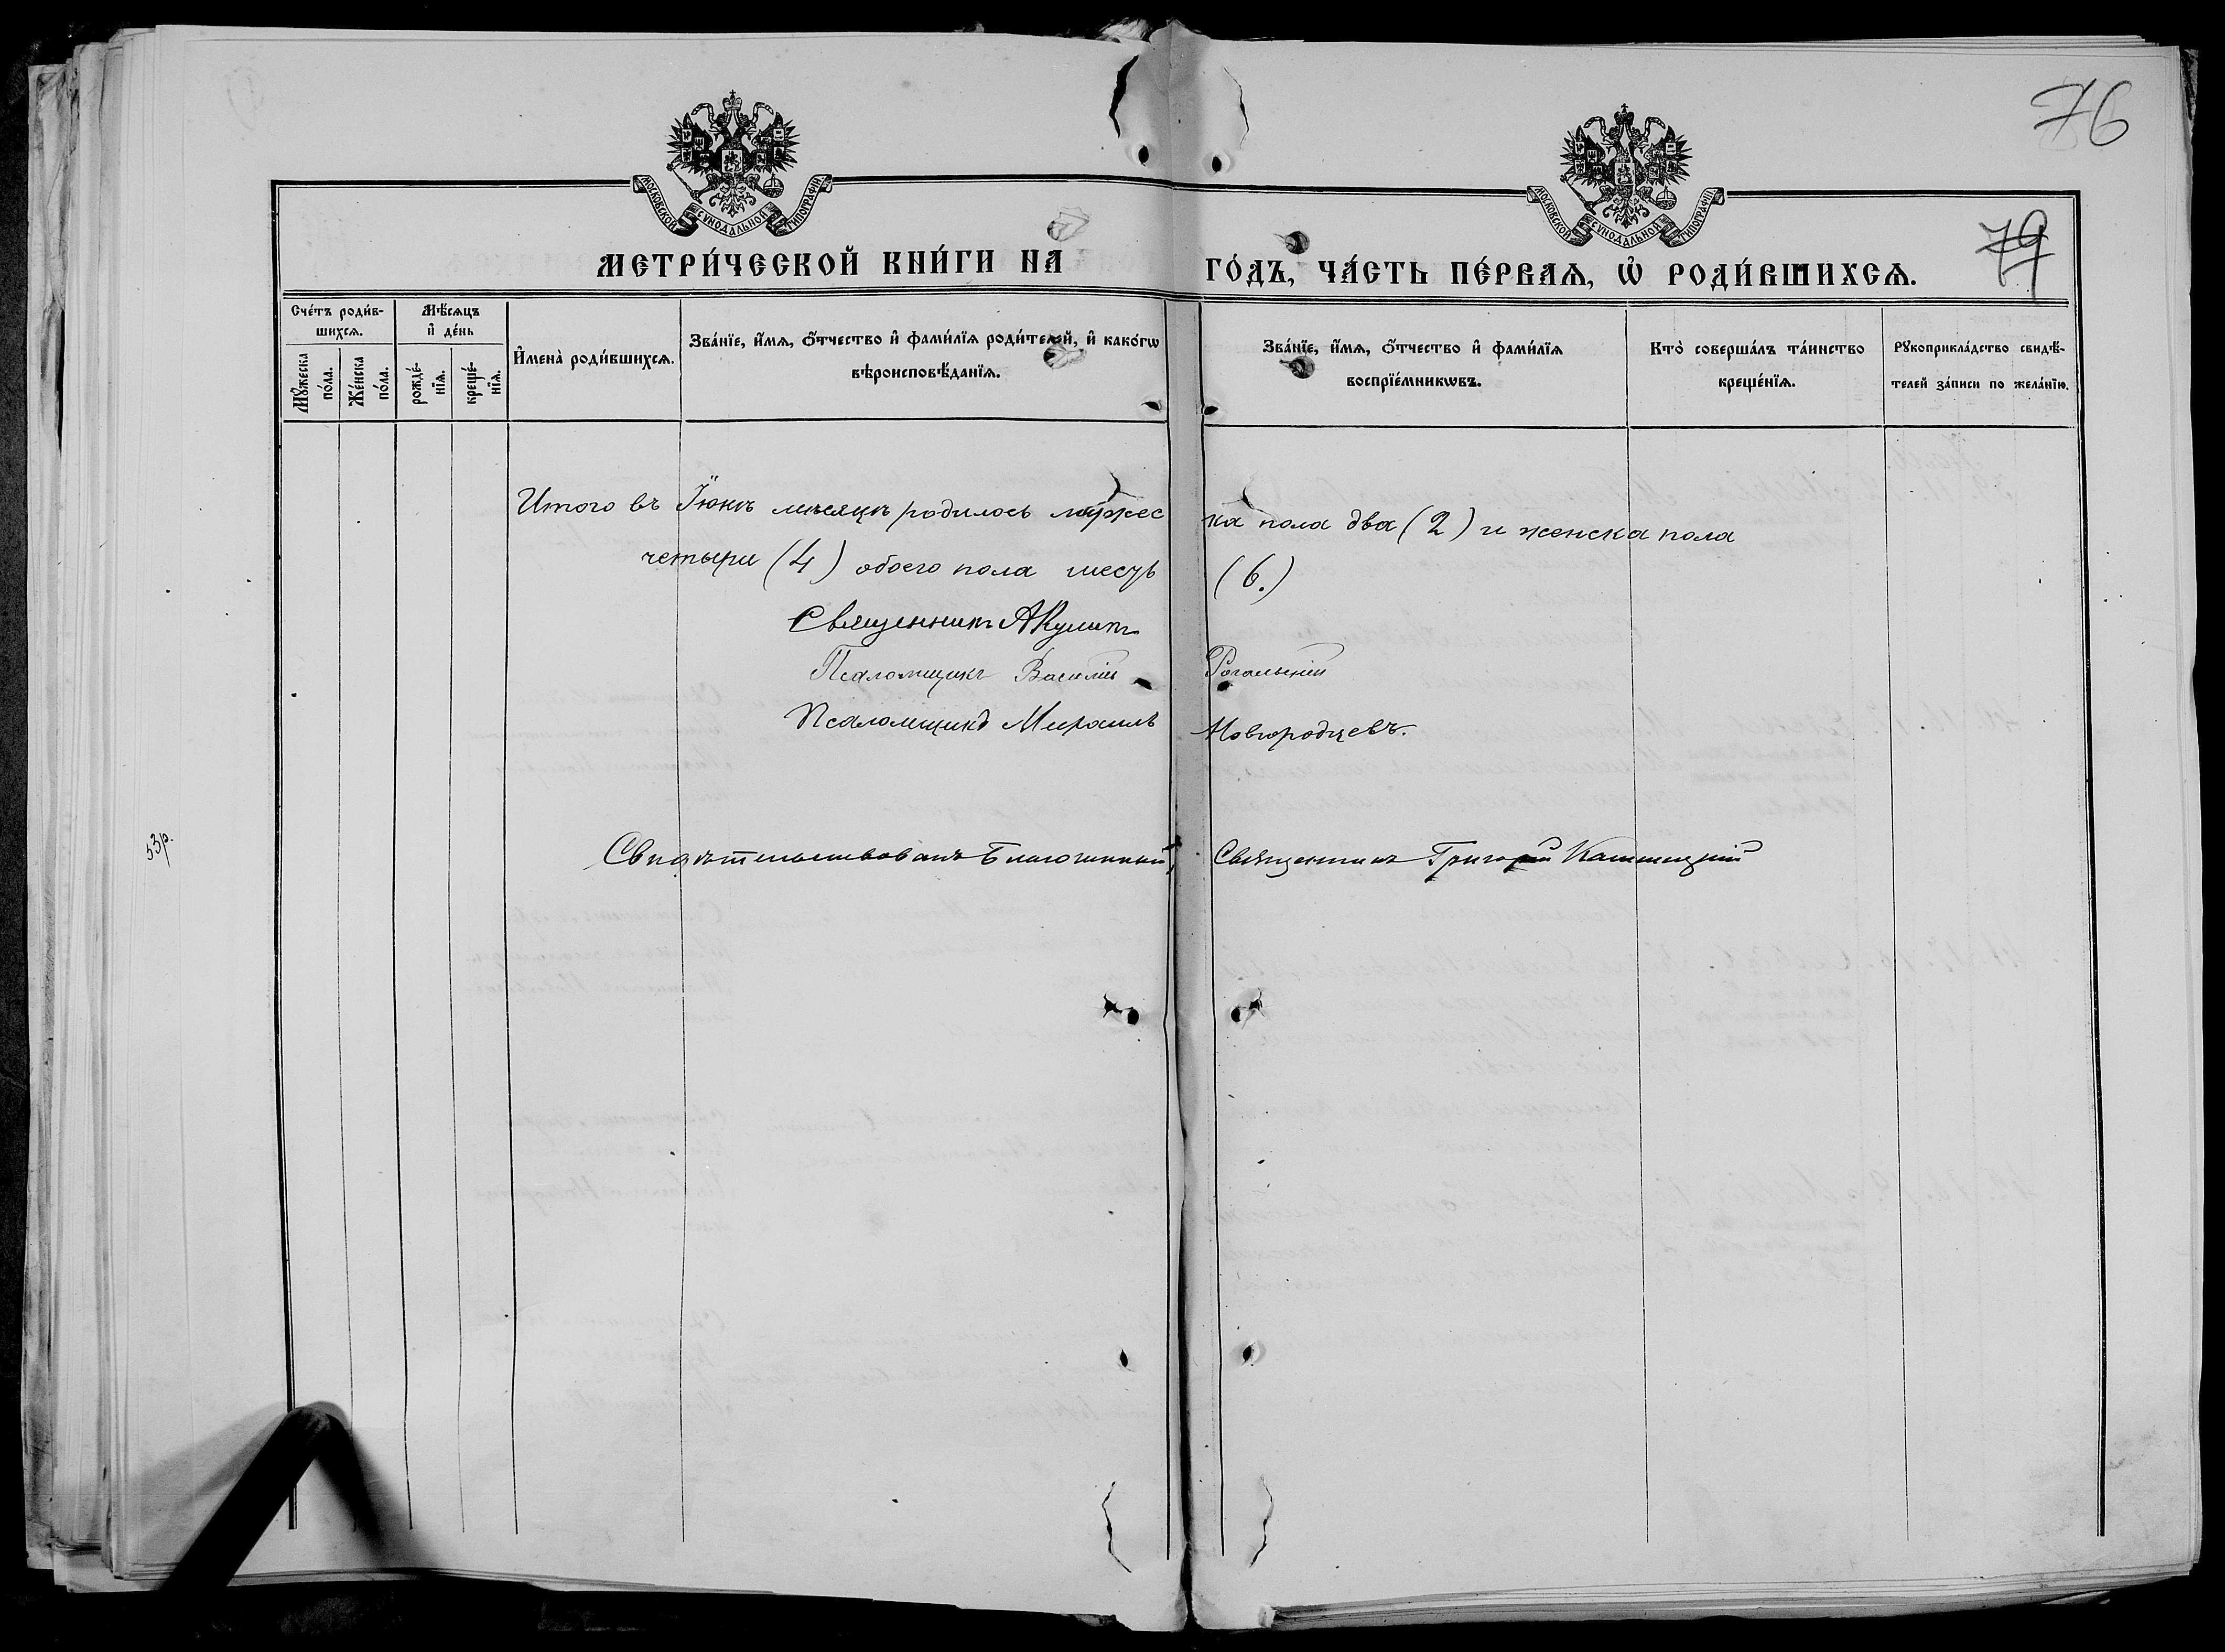 76
МОСКОВСКОЙ СУНОДАЛЬНОЙ ТИПОГРАФІИ
МОСКОВСКОЙ СУНОДАЛЬНОЙ ТИПОГРАФІИ
79
МЕТРИ́ЧЕСКОЙ КНИ́ГИ НА ГО́ДЪ, ЧА́СТЬ ПЕ́РВАѦ, Ѡ҆ РОДИ́ВШИХСѦ.
Сче́тъ роди́в-
шихсѧ.
Мѣ́сѧцъ
и҆ де́нь
Мꙋ́жеска
по́ла.
Же́нска
по́ла.
рожде́-
нїѧ.
креще́-
нїѧ.
И҆мена̀ роди́вшихсѧ.
Зва́нїе, и҆́мѧ, ѻ҆́тчество и҆ фами́лїѧ роди́телей, и҆ како́гѡ
вѣроисповѣ́данїѧ.
Зва́нїе, и҆́мѧ, ѻ҆́тчество и҆ фами́лїѧ
воспрїе́мникѡвъ.
Кто̀ соверша́лъ та́инство
креще́нїѧ.
Рꙋкоприкла́дство свидѣ́-
телей за́писи по жела́нїю.
Итого въ Іюнѣ мѣсяцѣ родилось мужеска пола два (2) и женска пола
четыри (4) обоего пола шесть (6.)
Священникъ А Кулик
Псаломщикъ Василій Рогальскій
Псаломщикъ Михаилъ Новгородцевъ.
53р.
Свидѣтельствовалъ Благочинный, Священникъ Григорій